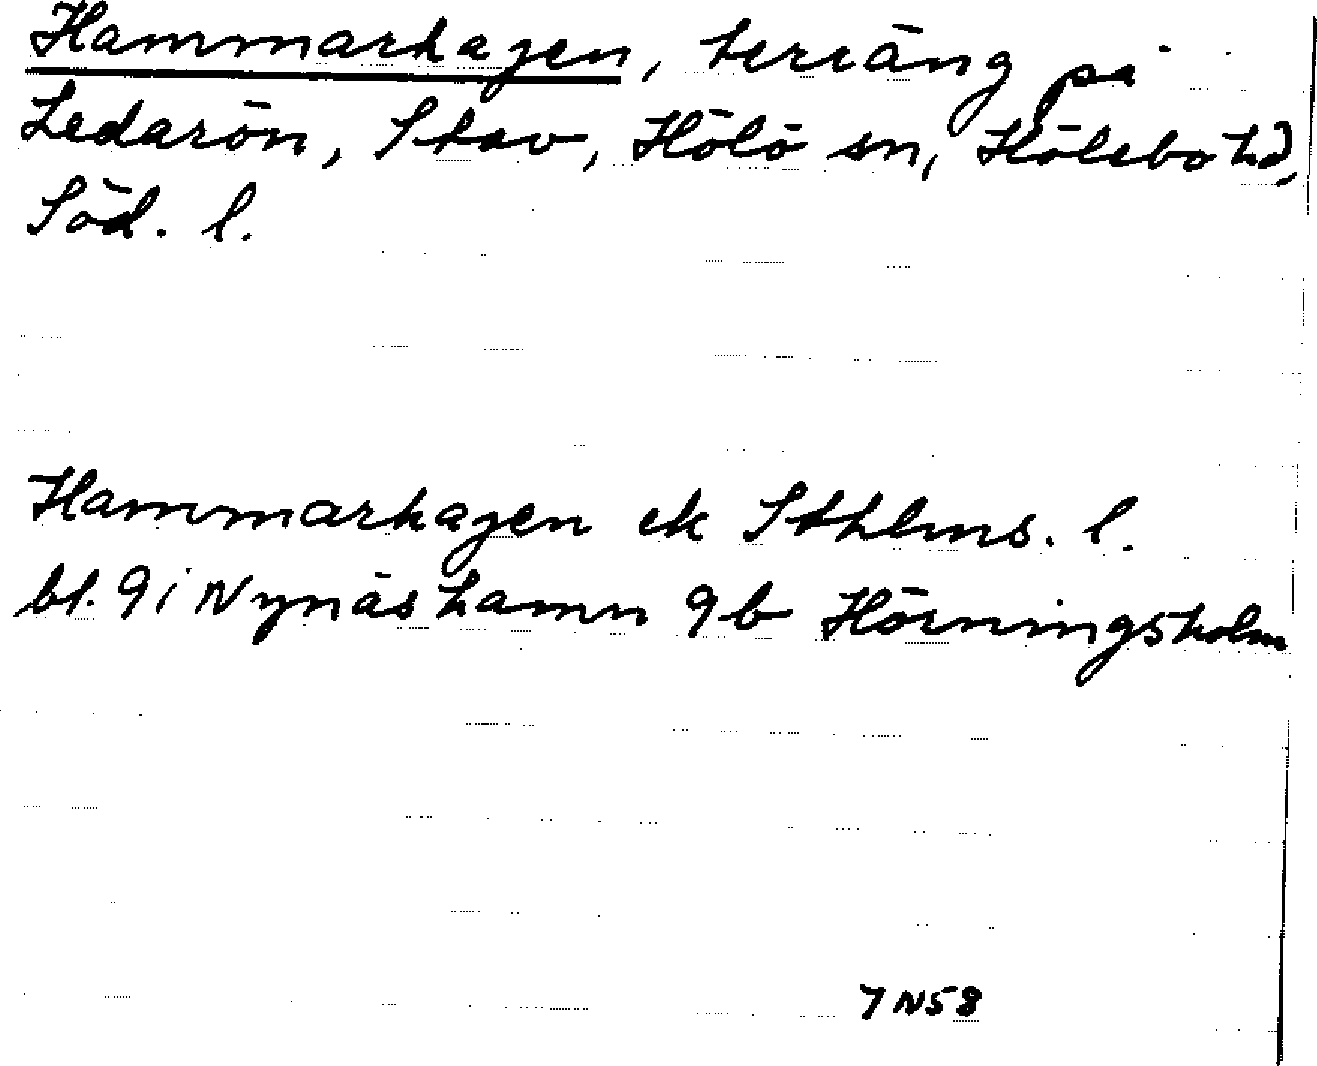 Hammarhagen, terräng på
Ledarön, Skav, Hölö sn, Hölebo hd,
Söd. l.
Hammarhagen ek Sthlms. l.
bl. 9i Nynäshamn 9b Hörningsholm
7 N58